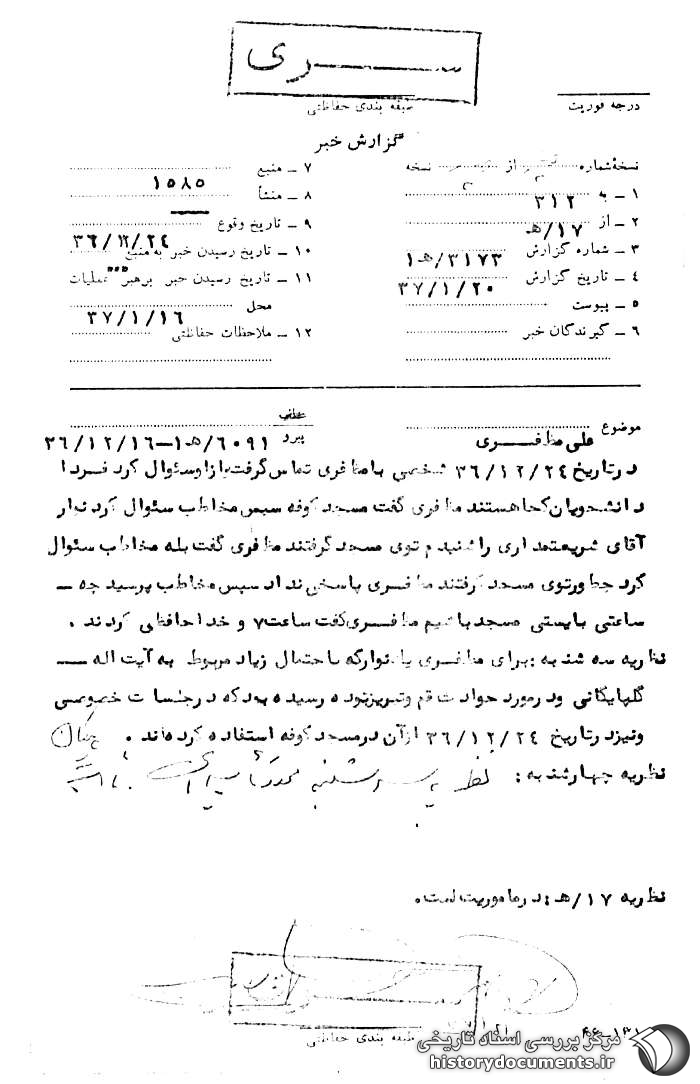 سری
طبقه بندی حفاظتی
درجه فوریت
گزارش خبر
نسخهٔ شماره از نسخه
۱ ـ به ۳۱۲
۲ ـ از ۱۷/ه‍
۳ ـ شماره گزارش ۳۱۷۳/ه‍۱
۴ ـ تاریخ گزارش ۳۷/۱/۲۰
۵ ـ پیوست
۶ ـ گیرندگان خبر
۷ ـ منبع ۱۵۸۵
۸ ـ منشأ
۹ ـ تاریخ وقوع ۳۶/۱۲/۲۴
۱۰ ـ تاریخ رسیدن خبر به منبع
۱۱ ـ تاریخ رسیدن خبر برهبر عملیات
محل ۳۷/۱/۱۶
۱۲ ـ ملاحظات حفاظتی
موضوع علی مظفری
پیرو ۶۰۹۱/ه‍۱-۳۶/۱۲/۱۶
در تاریخ ۳۶/۱۲/۲۴ شخصی با مظفری تماس گرفت و از او سئوال کرد فردا
دانشجویان کجا هستند مظفری گفت مسجد کوفه سپس مخاطب سئوال کرد نوار
آقای شریعتمداری را شنیدم توی مسجد گرفتند مظفری گفت بله مخاطب سئوال
کرد چطور توی مسجد گرفتند مظفری پاسخی نداد سپس مخاطب پرسید چه ـ
ساعتی بایستی مسجد باشیم مظفری گفت ساعت ۷ و خداحافظی کردند .
نظریه سه شنبه : برای مظفری یک نوار که باحتمال زیاد مربوط به آیت اله ـ
گلپایگانی و در مورد حوادث قم و تبریز بوده رسیده بود که در جلسات خصوصی
و نیز در تاریخ ۳۶/۱۲/۲۴ از آن در مسجد کوفه استفاده کرده اند .
نظریه چهارشنبه : نظریه سه شنبه
نظریه ۱۷/ه‍ : در ماموریت است .
طبقه بندی حفاظتی
مرکز بررسی اسناد تاریخی
historydocuments.ir